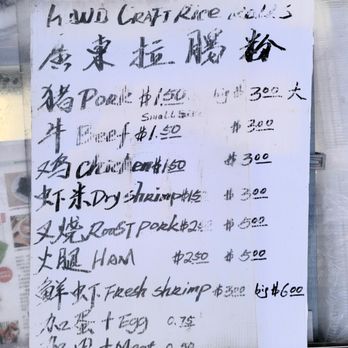 HAND CRAFT Rice Rolls
廣東拉腸粉
猪 Pork $1.50 big $3.00 大
Small Size
牛 Beef $1.50 $3.00
鸡 Chicken $1.50 $3.00
虾米 Dry shrimp $1.5 $3.00
叉烧 Roast pork $2.50 $5.00
火腿 HAM $2.50 $5.00
鮮虾 Fresh shrimp $3.00 big $6.00
加蛋 + Egg 0.75
加肉 + Meat